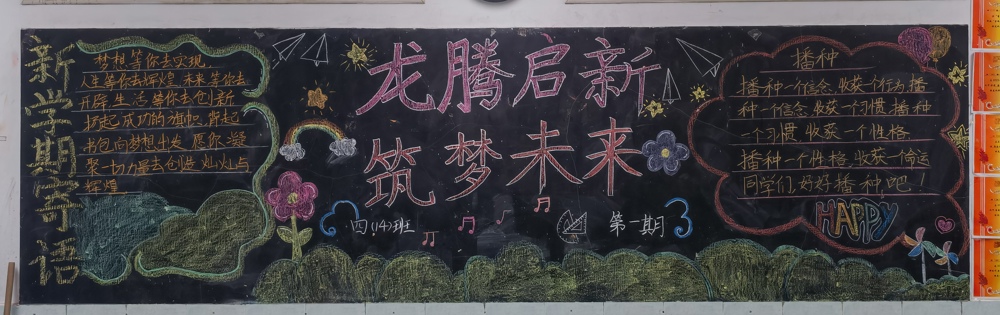 新学期寄语
梦想等你去实现
人生等你去辉煌 未来等你去
开辟 生活等你去创新
扬起成功的旗帜 背起
书包向梦想出发 愿你凝
聚一切力量去创造灿烂与
辉煌
龙腾启新
筑梦未来
四(14)班
第一期
播种
播种一个信念,收获一个行为,播
种一个信念,收获一个习惯,播种
一个习惯,收获一个性格
播种一个性格,收获一个命运
同学们,好好播种吧!
HAPPY